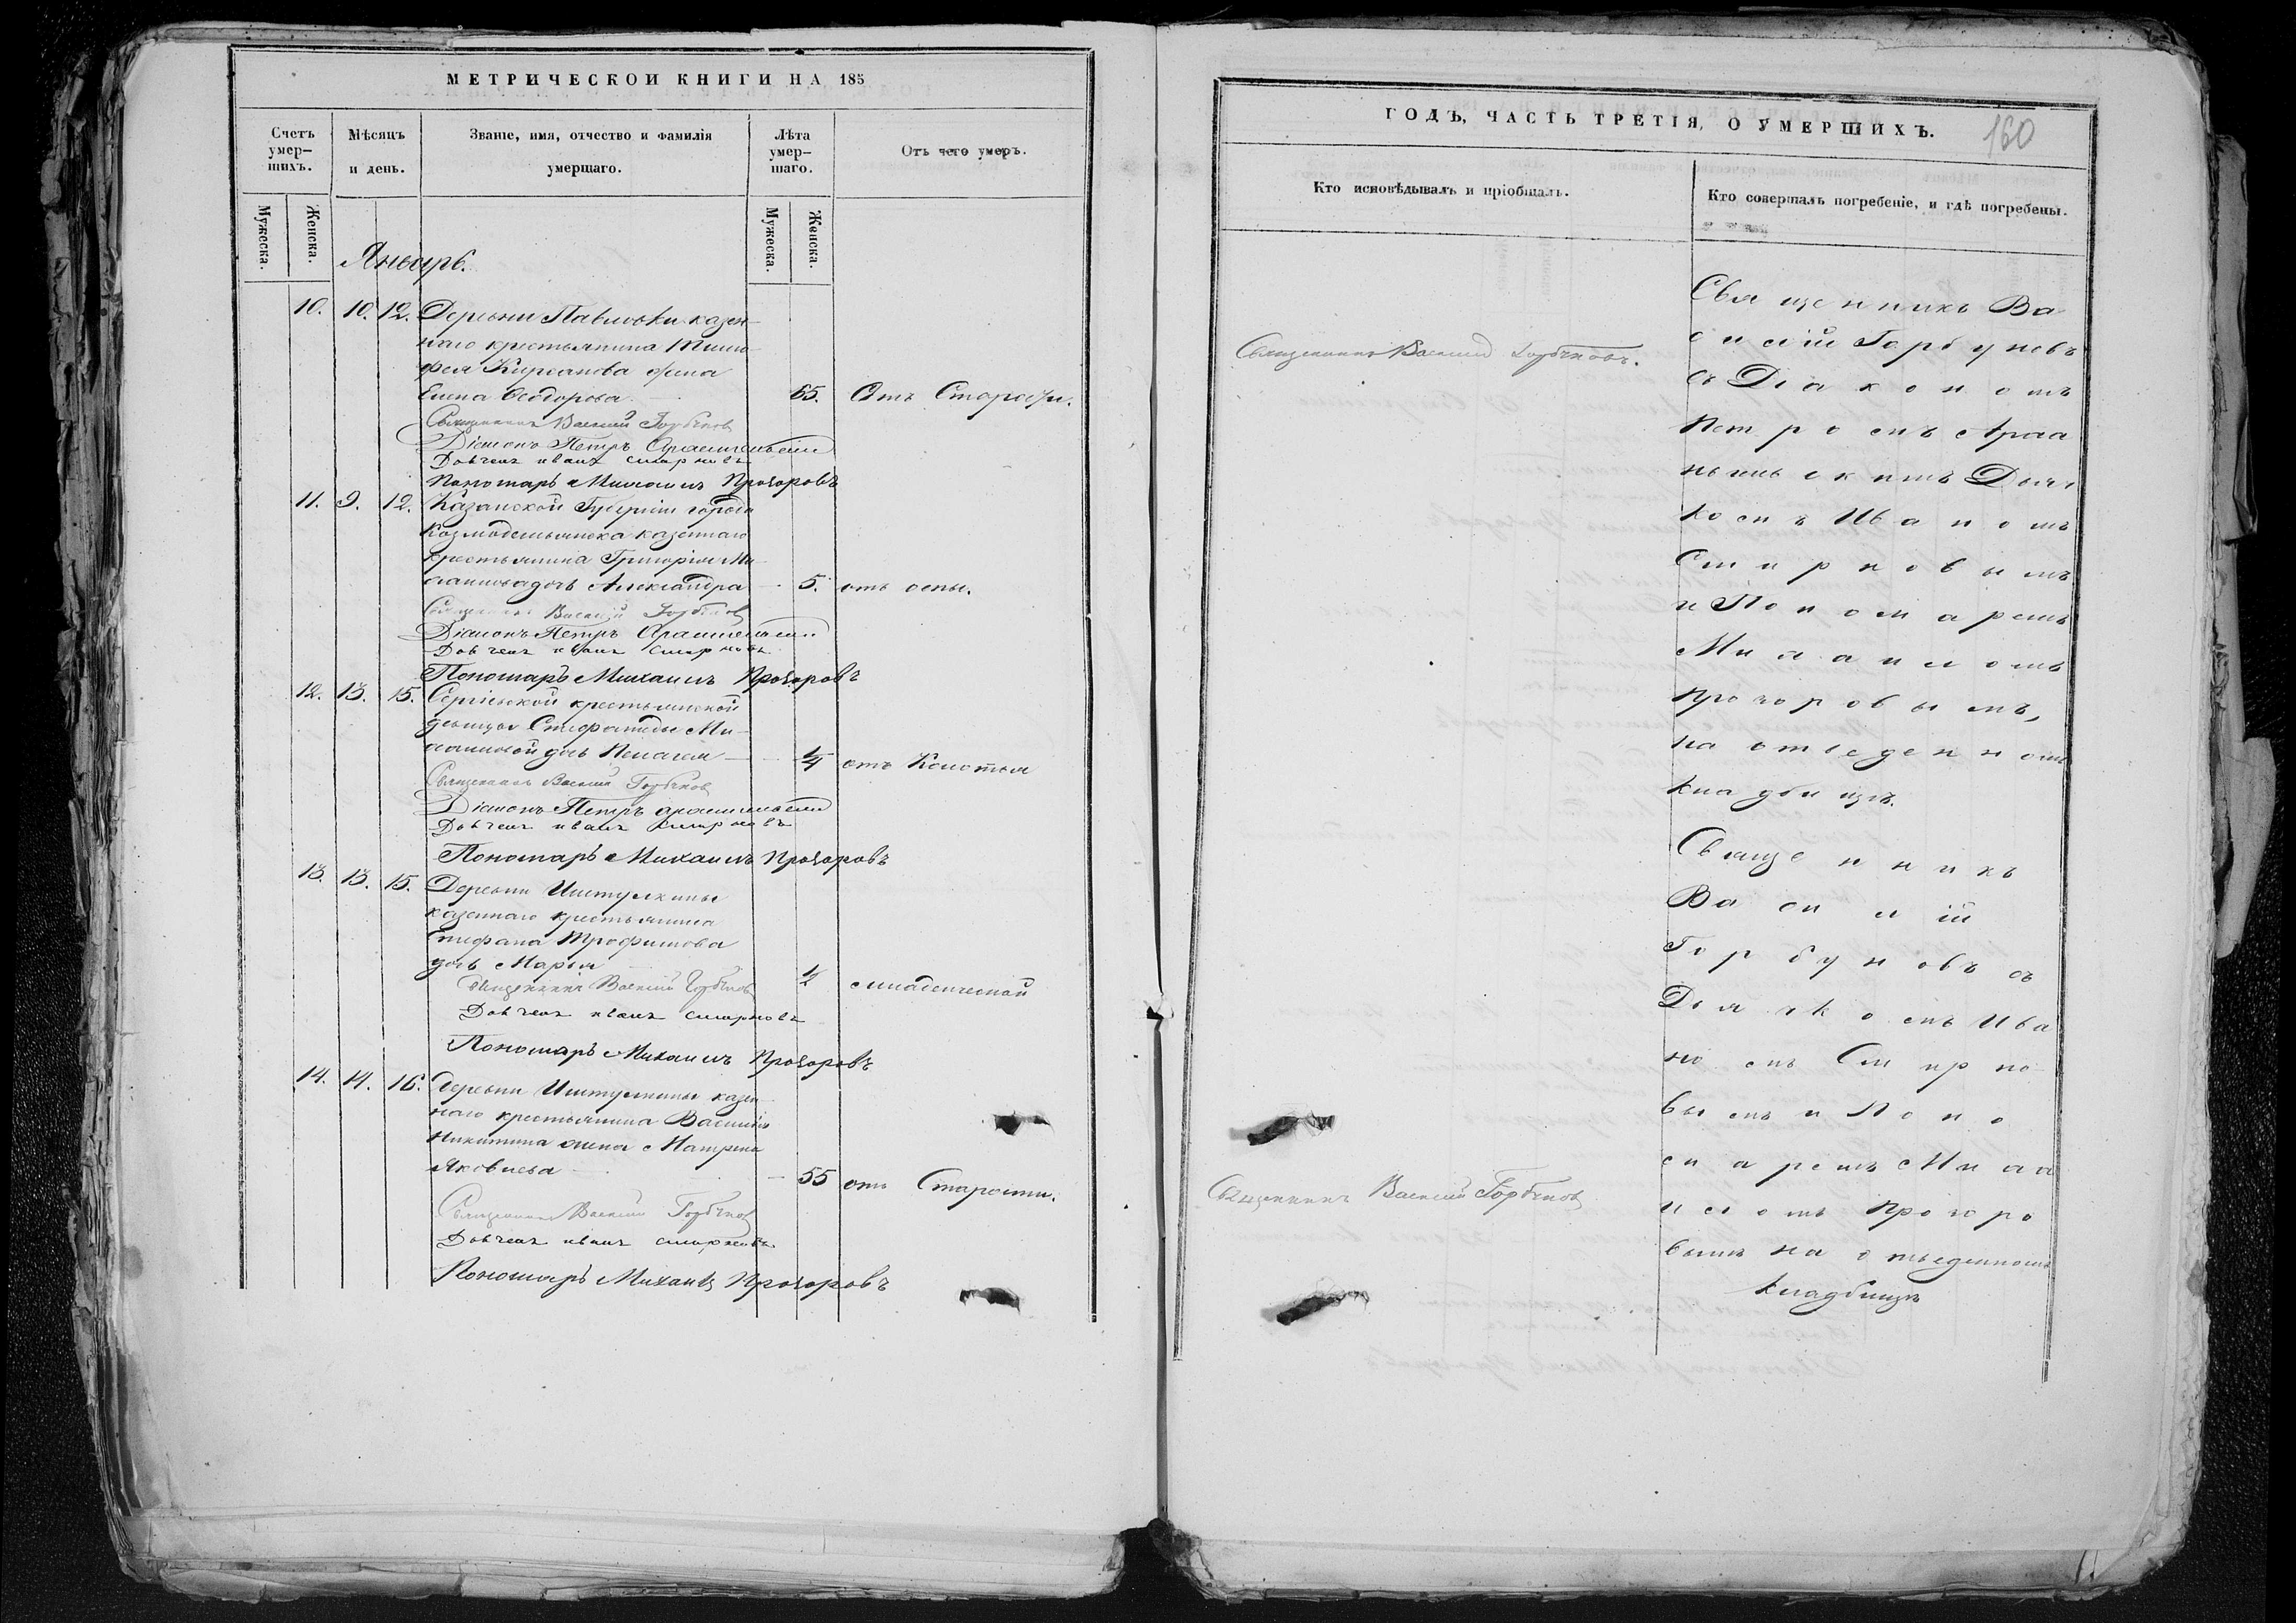 МЕТРИЧЕСКОЙ КНИГИ НА 185
Счетъ умер-шихъ.
Мѣсяцъ и день.
Званіе, имя, отчество и фамилія умершаго.
Лѣта умер-шаго.
Отъ чего умеръ.
Мужеска.
Женска.
Мужеска.
Женска.
Январь.
10. 10. 12. Деревни Павловки казен-
наго крестьянина Тимо-
фея Кирсанова жена
Елена Ѳеодорова 65. Отъ Старости.
Священникъ Василій Горбуновъ
Діаконъ Петръ
Дьячекъ Иванъ Смирновъ
Пономарь Михаилъ Прохоровъ
11. 9. 12. Казанской Губерніи города
Козмодемьянска казеннаго
крестьянина Григорія Ми-
хаилова дочь Александра 5. отъ оспы.
Священникъ Василій Горбуновъ
Діаконъ Петръ
Дьячекъ Иванъ Смирновъ
Пономарь Михаилъ Прохоровъ
12. 13. 15. Сергіевской крестьянской
девицы Стефаниды Ми-
хаиловой дочь Пелагея 1/4 отъ Колотья
Священникъ Василій Горбуновъ
Діаконъ Петръ
Дьячекъ Иванъ Смирновъ
Пономарь Михаилъ Прохоровъ
13. 13. 15. Деревни Иштулкины
казеннаго крестьянина
Стефана Трофимова
дочь Марья 1/2 младенческой
Священникъ Василій Горбуновъ
Дьячекъ Иванъ Смирновъ
Пономарь Михаилъ Прохоровъ
14. 14. 16. Деревни Иштулкины казен-
наго крестьянина Василія
Никитина жена Матрена
Яковлева 55 отъ Старости.
Священникъ Василій Горбуновъ
Дьячекъ Иванъ Смирновъ
Пономарь Михаилъ Прохоровъ
ГОДЪ, ЧАСТЬ ТРЕТІЯ, О УМЕРШИХЪ.
160
Кто исповѣдывалъ и пріобщалъ.
Кто совершалъ погребеніе, и гдѣ погребены.
Священникъ Василій Горбуновъ.
Священникъ Ва
силій Горбуновъ
съ Діакономъ
Петромъ
Дьяч
комъ Иваномъ
Смирновымъ
и Пономаремъ
Михаиломъ
Прохоровымъ,
на отведенном
кладбищѣ.
Священникъ
Василій
Горбуновъ съ
Дьячкомъ Ива
номъ Смирно
вымъ и Поно
маремъ Миха
иломъ Прохоро
вымъ на отведенномъ
кладбищѣ
Священникъ Василій Горбуновъ